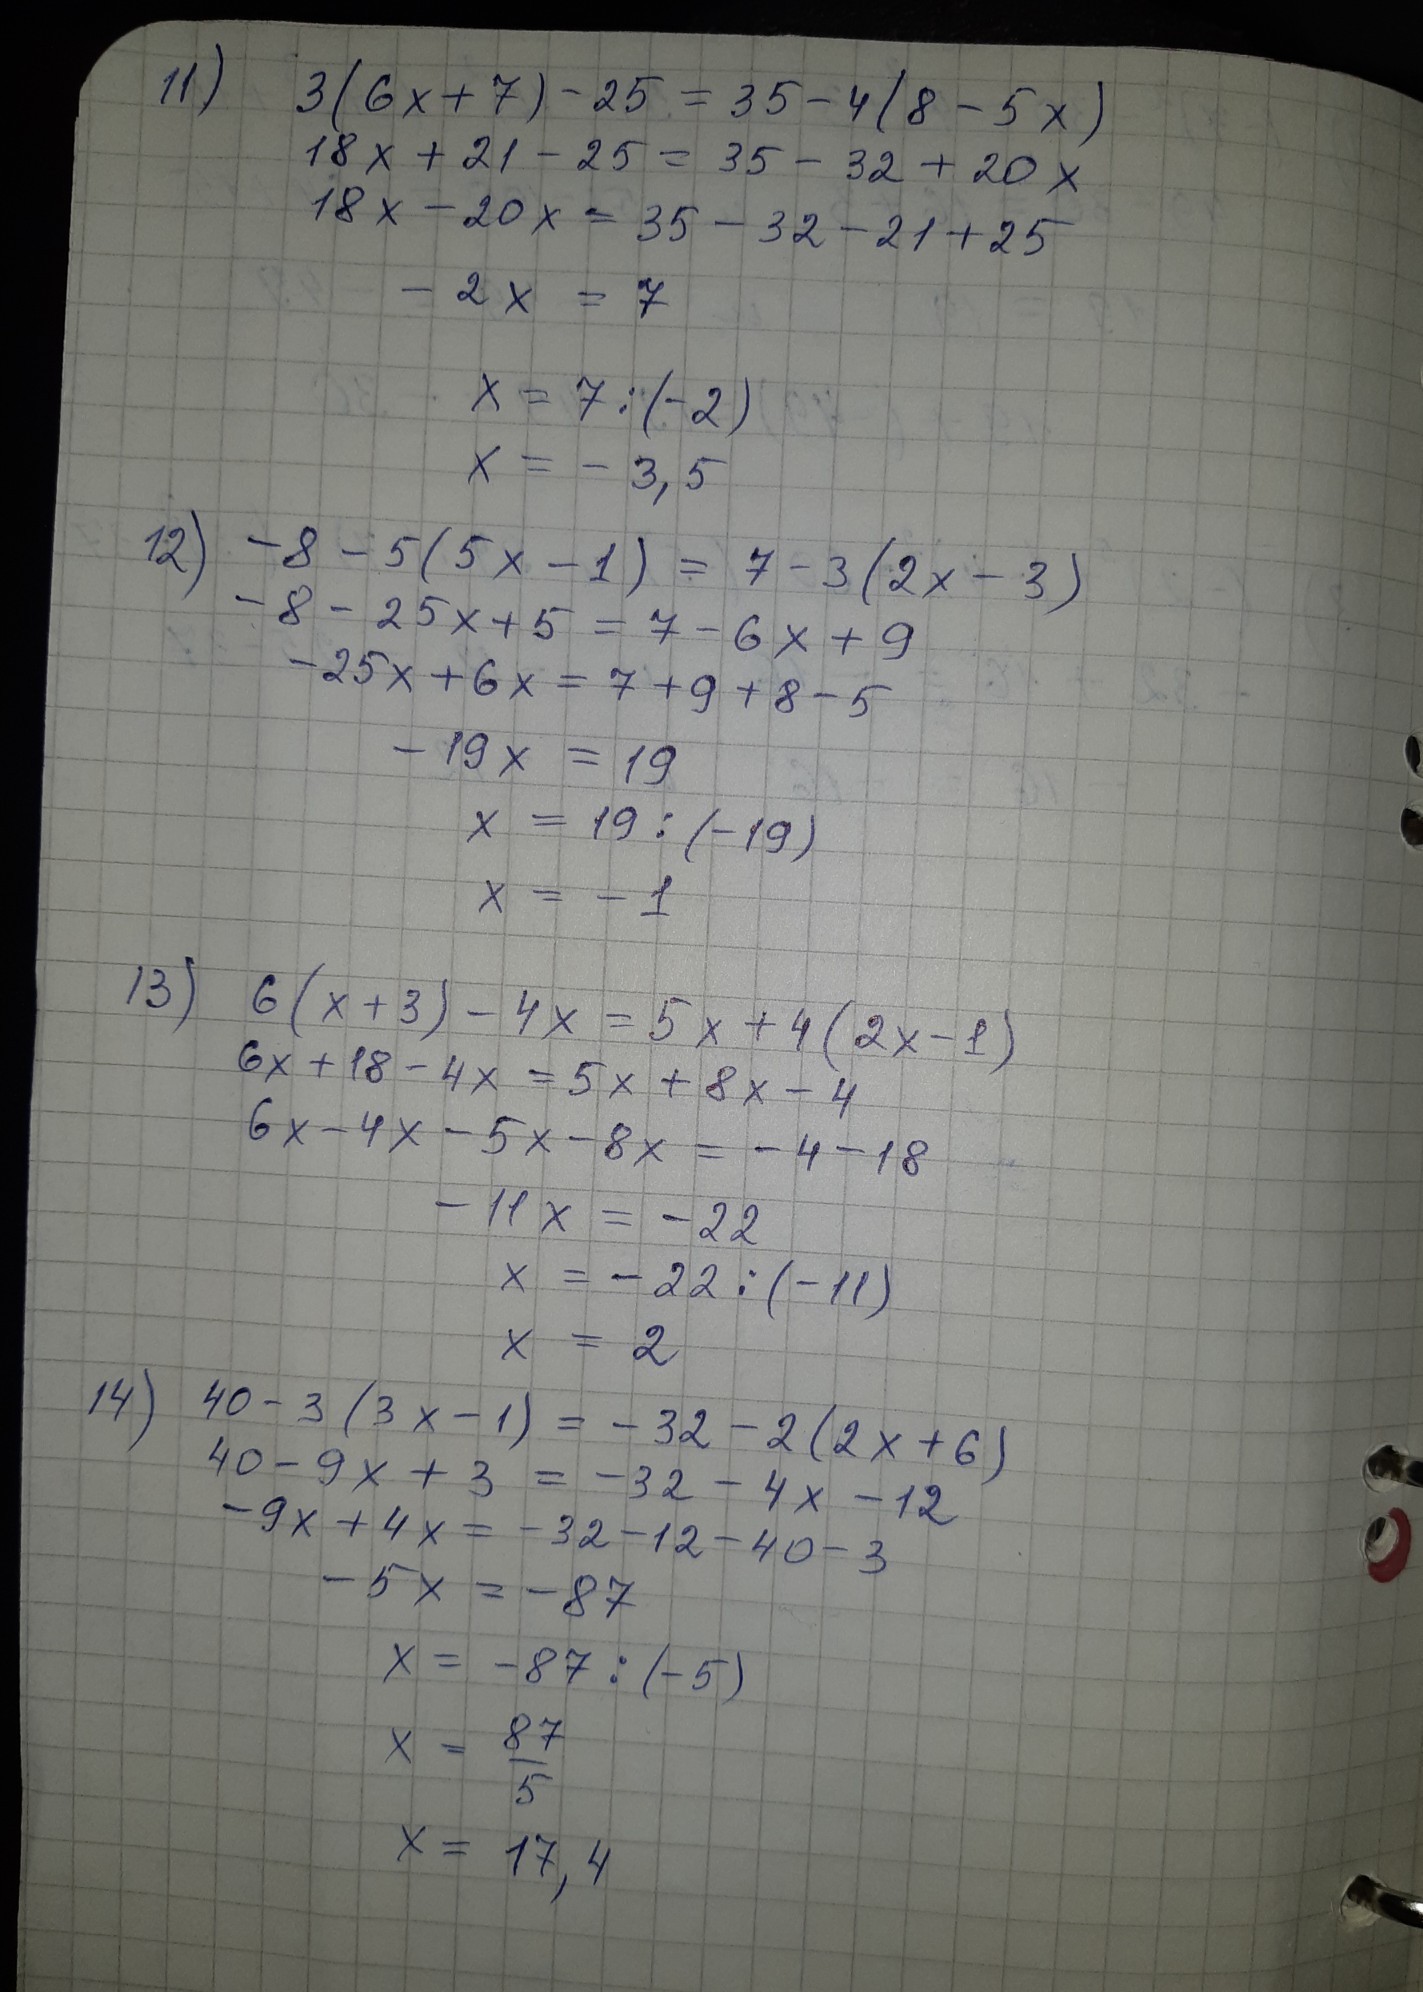 11) 3(6x+7)-25=35-4(8-5x)
18x+21-25=35-32+20x
18x-20x=35-32-21+25
-2x=7
x=7:(-2)
x=-3,5
12) -8-5(5x-1)=7-3(2x-3)
-8-25x+5=7-6x+9
-25x+6x=7+9+8-5
-19x=19
x=19:(-19)
x=-1
13) 6(x+3)-4x=5x+4(2x-1)
6x+18-4x=5x+8x-4
6x-4x-5x-8x=-4-18
-11x=-22
x=-22:(-11)
x=2
14) 40-3(3x-1)=-32-2(2x+6)
40-9x+3=-32-4x-12
-9x+4x=-32-12-40-3
-5x=-87
x=-87:(-5)
x=87/5
x=17,4